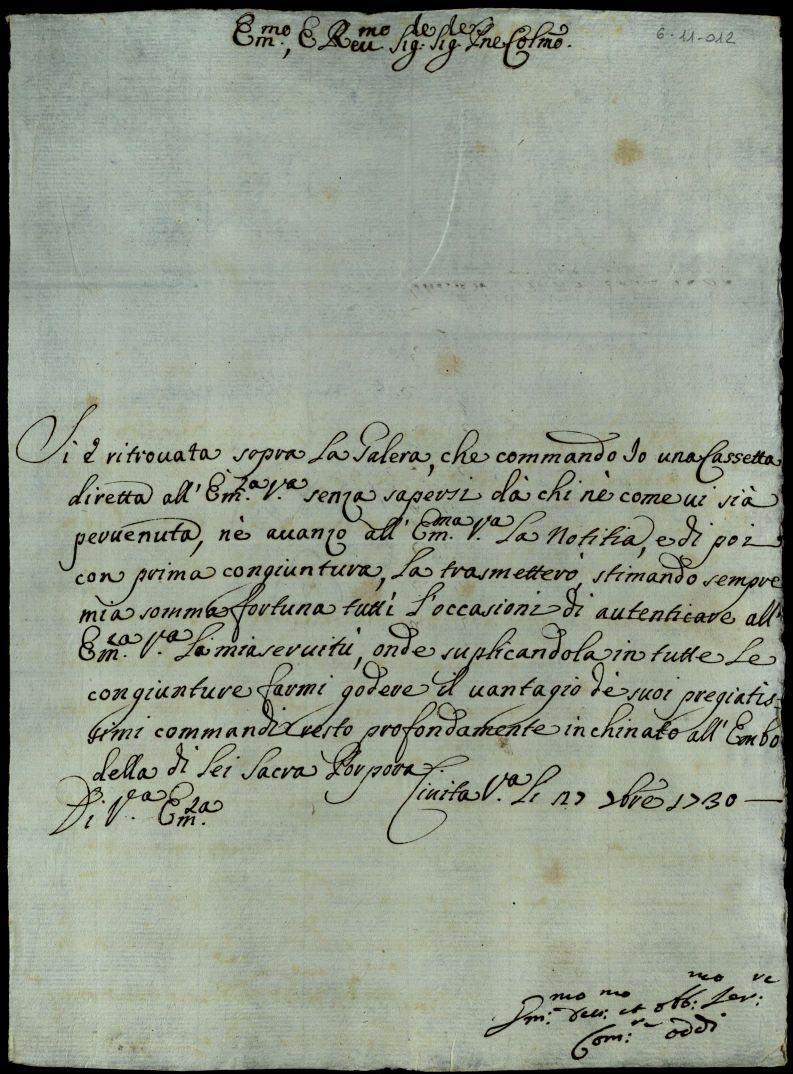 Em.mo, E Reu.mo Sig.de Sig.de Pne Colmõ.
6-11-012
Si è ritrouata sopra La Galera, che commando Io una Cassetta
diretta all' Em.za V.a senza sapersi dà chi nè come ui sià
peruenuta, nè auanzo all' Em.ma V.a La Notitia, e di poi
con prima congiuntura, La trasmetterò, stimando sempre
mia somma fortuna tutti L'occasioni di autenticare all'
Em.za V.a La mia seruitù, onde suplicandola in tutte Le
congiunture farmi godere il uantagio de suoi pregiatis-
simi commandi resto profondamente inchinato all' Embo
della di Lei Sacra Porpora.
Ciuita V.a Li 27 7bre 1730
Di V.a Em.za
Um.mo deu.mo et obb.mo Ser.re
Com.re oddi